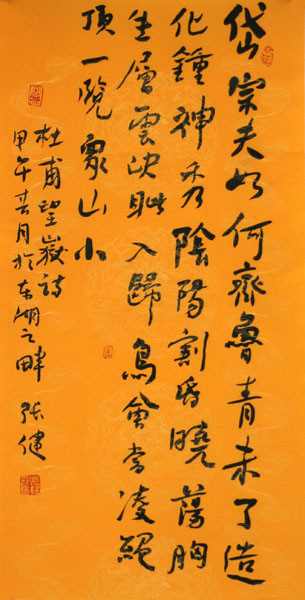 岱宗夫如何齊魯青未了造
化鍾神秀陰陽割昏曉蕩胸
生層雲決眦入歸鳥會當凌絕
頂一覽眾山小
杜甫望嶽詩
甲午春月於東湖之畔 張健